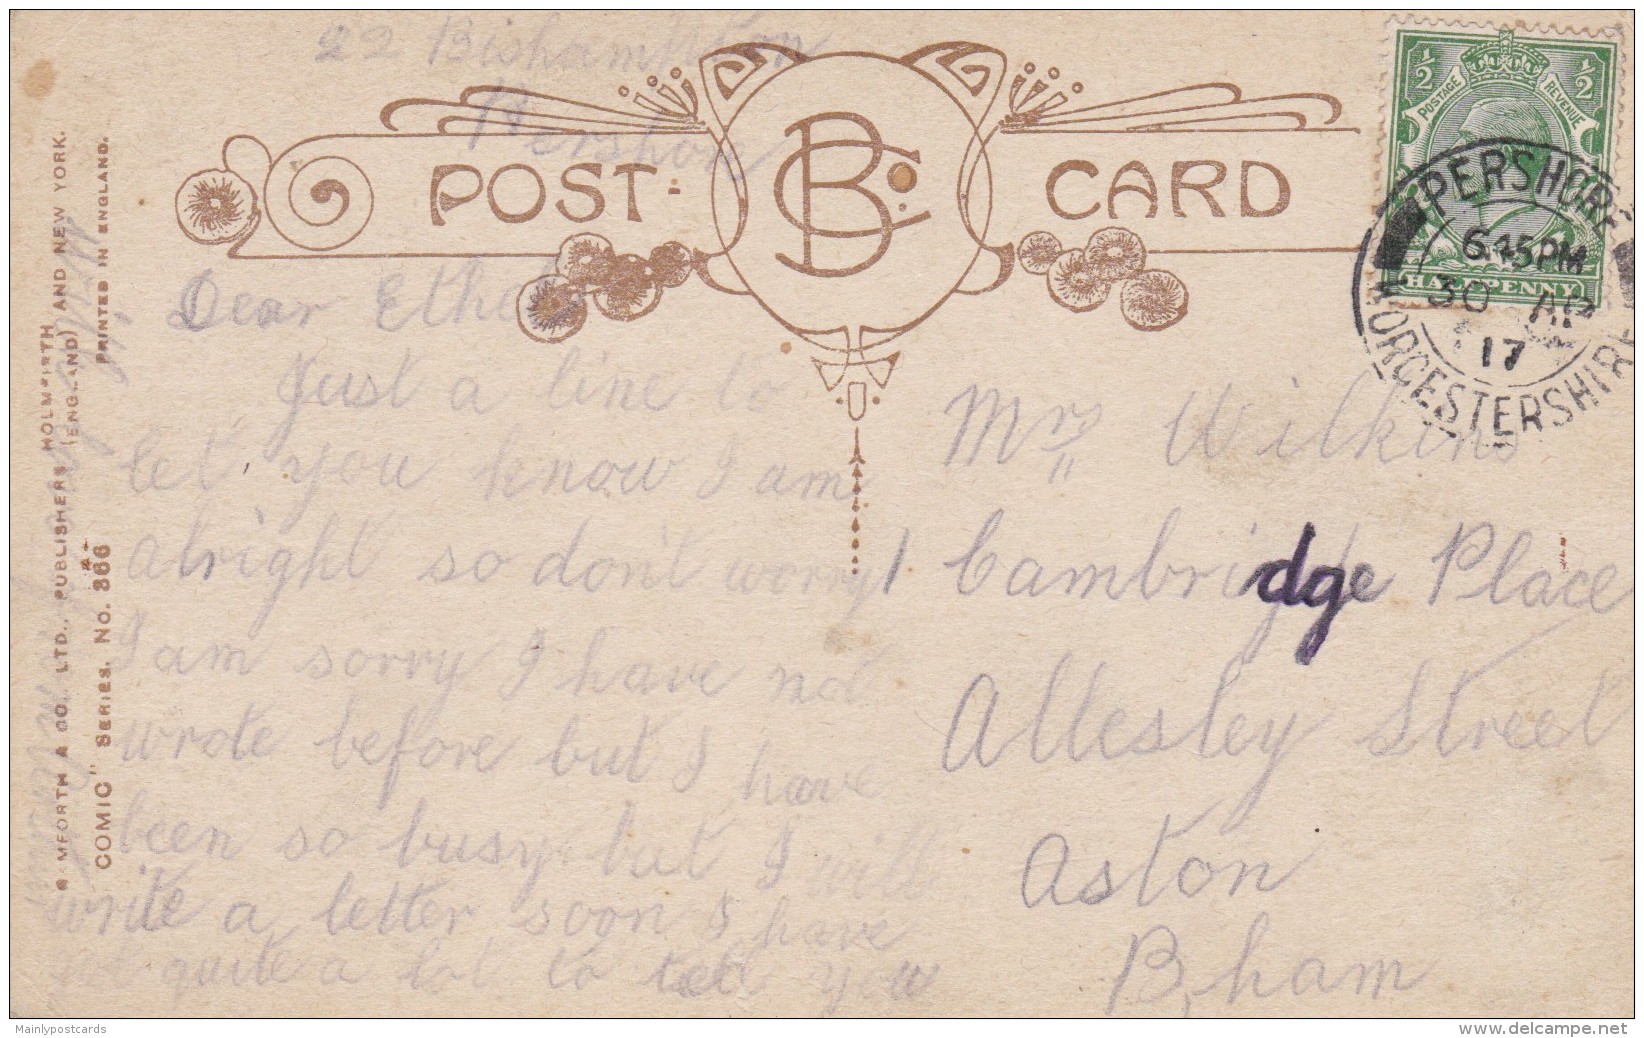 22 Bishampton
Pershore
POST-CARD
BCo.
½ ½
POSTAGE REVENUE
HALFPENNY
PERSHORE
6.45PM
30 AP
17
WORCESTERSHIRE
Dear Ethel
Just a line to
let you know I am
alright so don't worry
I am sorry I have not
wrote before but I have
been so busy but I will
write a letter soon I have
quite a lot to tell you
Mrs Wilkins
1 Cambridge Place
Allesley Street
Aston
B,ham
MFORTH & CO., LTD., PUBLISHERS, HOLMFIRTH (ENGLAND) AND NEW YORK.
COMIC" SERIES. No. 366
PRINTED IN ENGLAND.
Mainlypostcards
delcampe.net